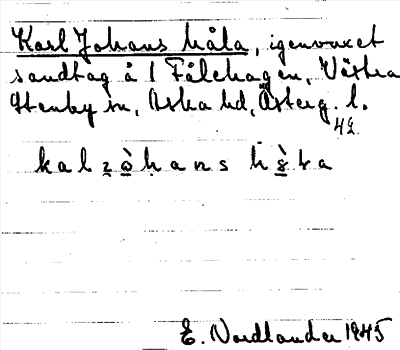 Karl Johans håla, igenvuxet
sandtag å 1 Fålehagen, Västra
Stenby sn, Aska hd, Österg. l.
E. Nordlander 1945